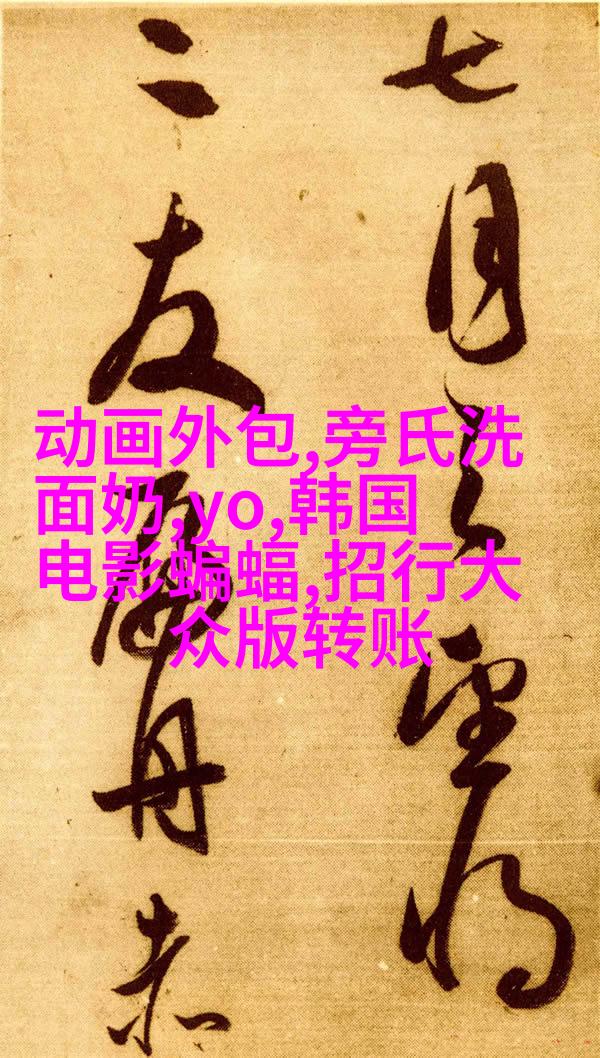 七月之望将
二友舟赤
动画外包,旁氏洗
面奶,yo,韩国
电影蝙蝠,招行大
众版转账